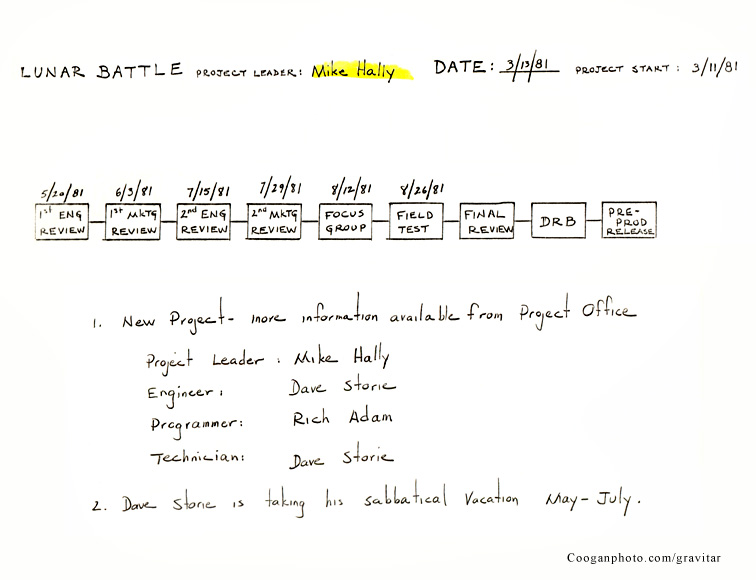 LUNAR BATTLE PROJECT LEADER: Mike Hally DATE: 3/13/81 PROJECT START: 3/11/81
5/20/81 6/3/81 7/15/81 7/29/81 8/12/81 8/26/81
1st ENG REVIEW
1st MKTG REVIEW
2nd ENG REVIEW
2nd MKTG REVIEW
FOCUS GROUP
FIELD TEST
FINAL REVIEW
DRB
PRE-PROD RELEASE
1. New Project - more information available from Project Office
Project Leader: Mike Hally
Engineer: Dave Storie
Programmer: Rich Adam
Technician: Dave Storie
2. Dave Storie is taking his sabbatical vacation May - July.
Cooganphoto.com/gravitar